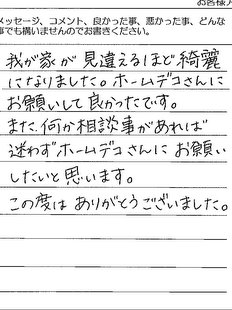 お客様
メッセージ、コメント、良かった事、悪かった事、どんな
事でも構いませんのでお書きください。
我が家が見違えるほど綺麗
になりました。ホームデコさんに
お願いして良かったです。
また、何か相談事があれば
迷わずホームデコさんにお願い
したいと思います。
この度はありがとうございました。